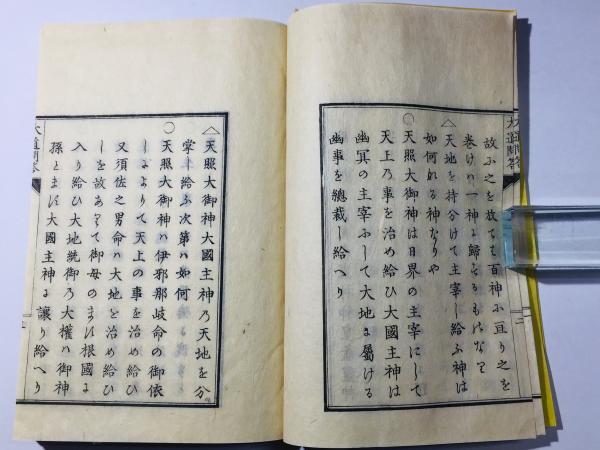 大道問答
故に之を放てば百神に亘り之を
巻けハ一神に歸するものなり
△天地を持分けて主宰し給ふ神は
如何なる神なりや
○天照大御神は日界の主宰にして
天上乃事を治め給ひ大國主神は
幽冥の主宰にして大地に屬ける
幽事を總裁し給へり
二
△天照大御神大國主神乃天地を分
掌し給ふ次第ハ如何
○天照大御神ハ伊邪那岐命の御依
しによりて天上の事を治め給ひ
又須佐之男命ハ大地を治め給ひ
しを故ありて御母のます根國に
入り給ひ大地統御乃大權ハ御神
孫とます大國主神に讓り給へり
大道問答